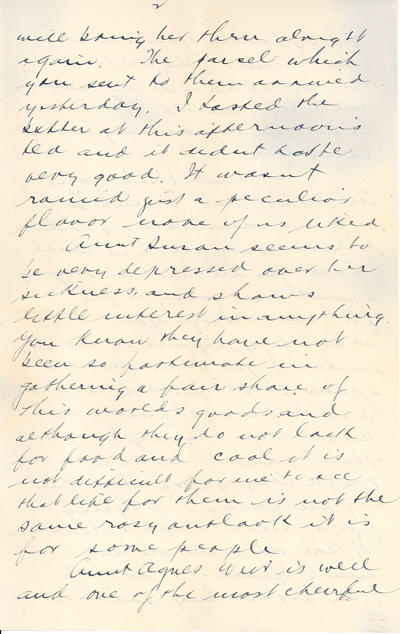 2
will bring her thru alright
again. The parsel which
you sent to them arrived
yesterday. I tasted the
butter at this afternoon's
tea and it didnt taste
very good. It wasn't
rancid just a peculior
flavor none of us liked.
Aunt Susan seems to
be very depressed over her
sickness, and shows
little interest in anything.
You know they have not
been so fortunate in
gathering a fair share of
this worlds goods and
although they do not lack
for food and coal it is
not difficult for me to see
that life for them is not the
same rosy outlook it is
for some people
Aunt Agnes Weir is well
and one of the most cheerful